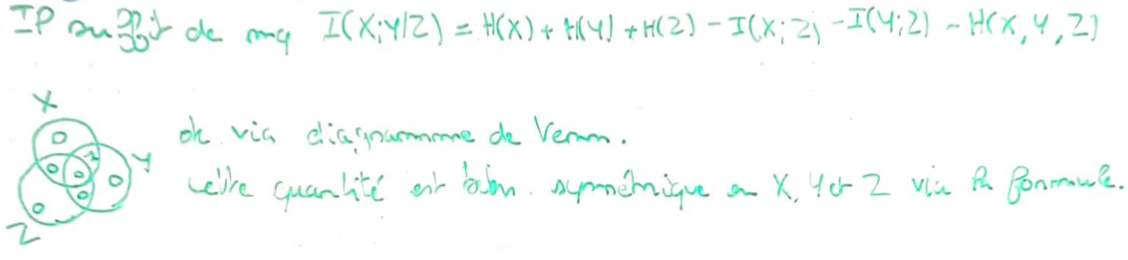 IP suffit de mq I(X;Y|Z) = H(X) + H(Y) + H(Z) - I(X;Z) - I(Y;Z) - H(X,Y,Z)
X
Y
Z
ok via diagramme de Venn.
Cette quantité est bien symétrique en X, Y et Z via la formule.